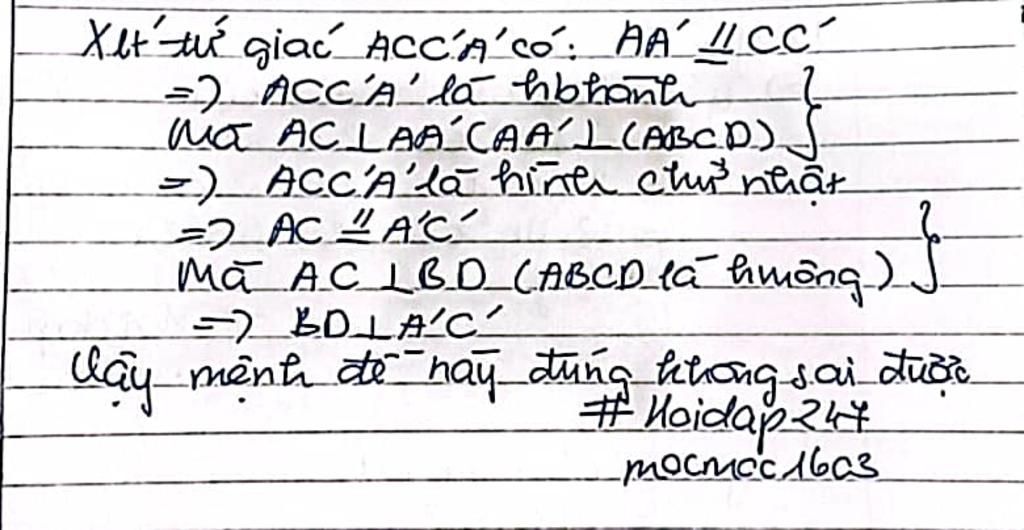 Xét tứ giác ACC'A' có: AA' // = CC'
=> ACC'A' là hbhành }
Mà AC ⊥ AA' (AA' ⊥ (ABCD) }
=> ACC'A' là hình chữ nhật
=> AC // = A'C' }
Mà AC ⊥ BD (ABCD là hvuông) }
=> BD ⊥ A'C'
Vậy mệnh đề này đúng không sai được
# Hoidap247
mocmcc1603